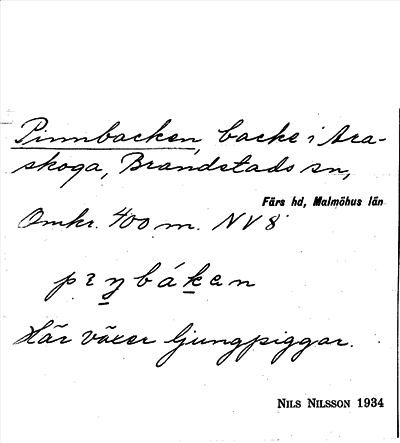 Pinnbacken, backe i Ara-
skoga, Brandstads sn,
Färs hd, Malmöhus län
Omkr. 400 m. NV 8
Här växer ljungpiggar.
NILS NILSSON 1934